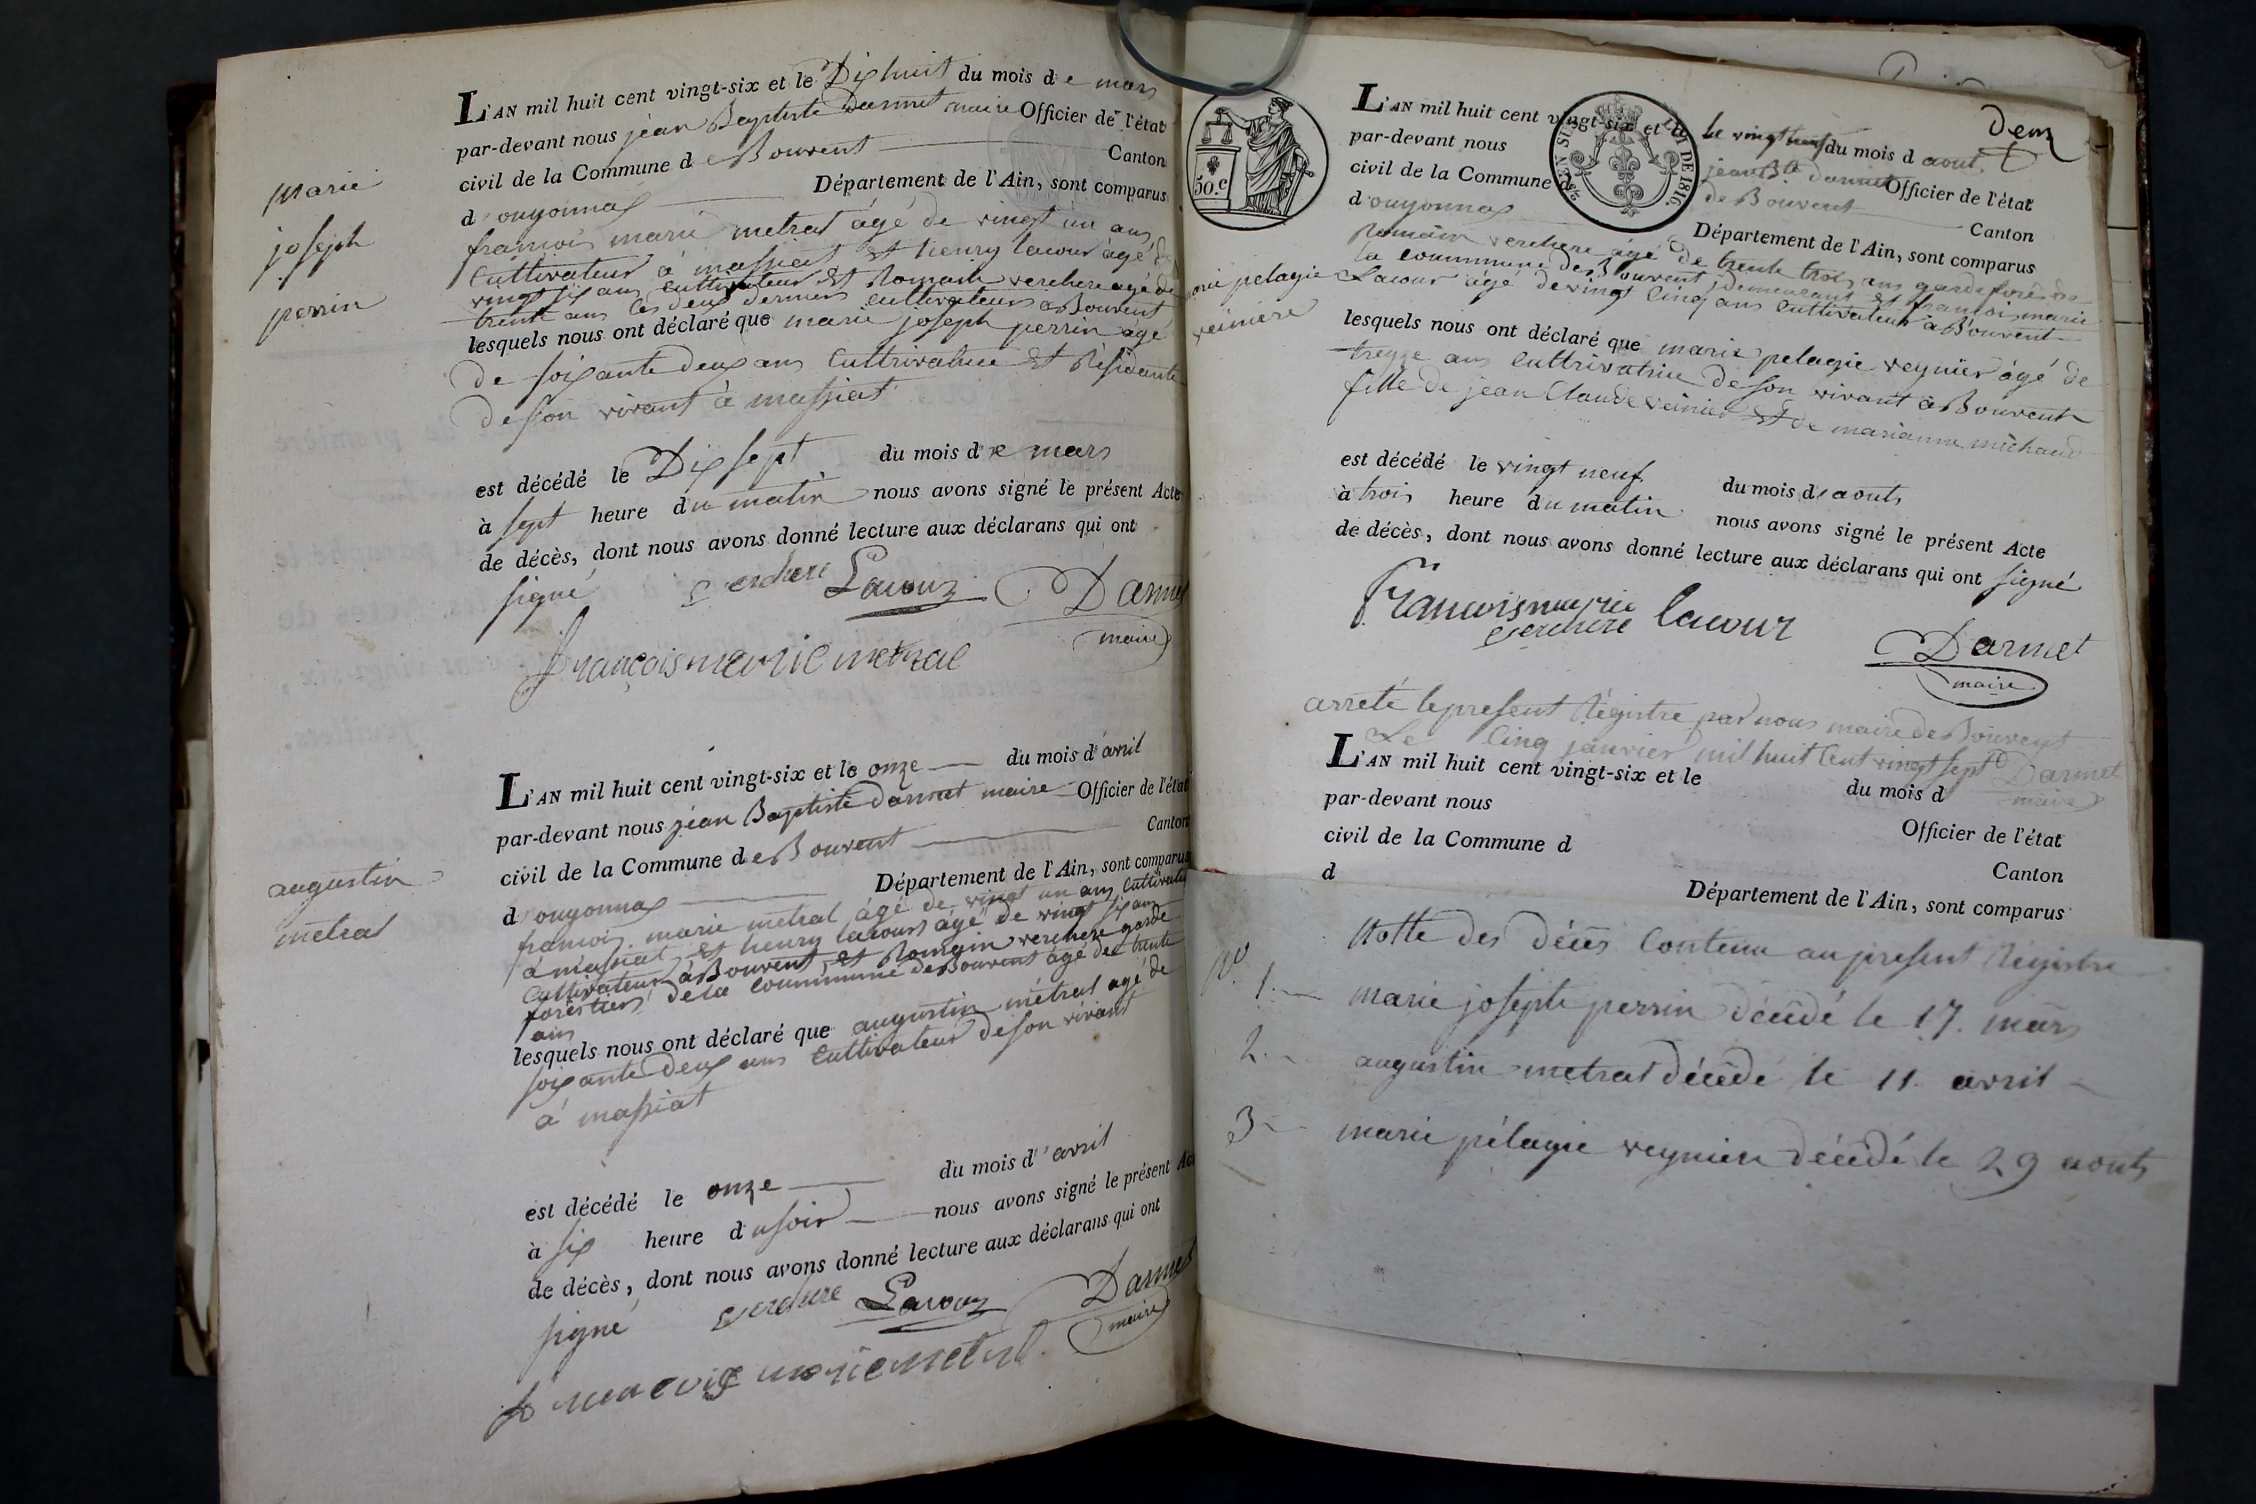 L'AN mil huit cent vingt-six et le Dixhuit du mois de mars
par-devant nous jean Baptiste Darmet maire Officier de l'état
civil de la Commune de Bouvent Canton
d'ouyonnax Département de l'Ain, sont comparus
francois marie metral âgé de vingt un ans
Cultivateur à massiat et henry lacour âgé de
vingt six ans cultivateur et Romain verchere agé de
trente ans les deux derniers cultivateurs a Bouvent
lesquels nous ont déclaré que marie joseph perrin agé
de soixante deux ans Cultivatrice et Résidante
de son vivant à massiat
est décédé le Dix sept du mois de mars
à sept heure du matin nous avons signé le présent Acte
de décès, dont nous avons donné lecture aux déclarans qui ont
signé verchere Lacour Darmet
maire
françois marie metral
marie
joseph
perrin
L'AN mil huit cent vingt-six et le onze du mois d'avril
par-devant nous jean Baptiste Darmet maire Officier de l'état
civil de la Commune de Bouvent Canton
d'ouyonnax Département de l'Ain, sont comparus
francois marie metral âgé de vingt un ans Cultivateur
à massiat et henry lacour âgé de vingt six ans
Cultivateur à Bouvent et Romain verchere garde
forestier de la commune de Bouvent âgé de trente
ans
lesquels nous ont déclaré que augustin métral agé de
soixante deux ans Cultivateur de son vivant
à massiat
est décédé le onze du mois d'avril
à six heure du soir nous avons signé le présent Acte
de décès, dont nous avons donné lecture aux déclarans qui ont
signé verchere Lacour Darmet
maire
francois marie metral
augustin
métral
50.c
LOI DE 1816
deux
L'AN mil huit cent vingt-six et le vingt neuf du mois d aout
par-devant nous jean Bte darmet Officier de l'état
civil de la Commune de Bouvent
d'ouyonnax Canton
Département de l'Ain, sont comparus
Romain verchere âgé de trente trois ans garde forêt de
la commune de Bouvent demeurant et francois marie
Lacour âgé de vingt cinq ans cultivateur à Bouvent
lesquels nous ont déclaré que marie pelagie reynier âgé de
treize ans cultivatrice de son vivant à Bouvent
fille de jean Claude reinier et de marianne michaud
est décédé le vingt neuf du mois d'aouts
à trois heure du matin nous avons signé le présent Acte
de décès, dont nous avons donné lecture aux déclarans qui ont signé
francois marie lacour
verchere
Darmet
maire
marie pelagie
reiniere
arreté le present Régistre par nous maire de Bouvent
Le Cinq janvier mil huit Cent vingt sept Darmet
maire
L'AN mil huit cent vingt-six et le du mois d
par-devant nous Officier de l'état
civil de la Commune d Canton
d Département de l'Ain, sont comparus
Notte des décès Contenu au present Régistre
No. 1. marie joseph perrin décédé le 17. mars
2. augustin metral décédé le 11. avril
3 marie pélagie reynier décédé le 29 aouts